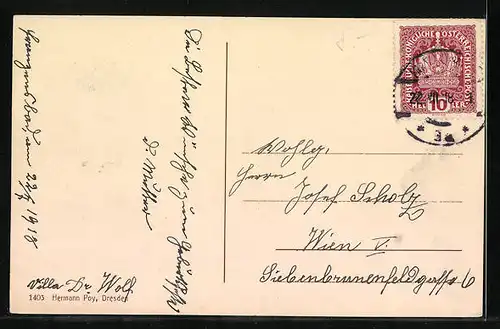 Franzensbad am 22/7 1918
Die besten Wünsche zum Geburtsfeste
d. Mutter
Villa Dr. Wolf.
1403 Hermann Poy, Dresden
KAISERLICHE KÖNIGLICHE ÖSTERREICHISCHE POST
10
HELLER
Wohlg.
Herrn
Josef Scholz
Wien V.
Siebenbrunnenfeldgasse 6